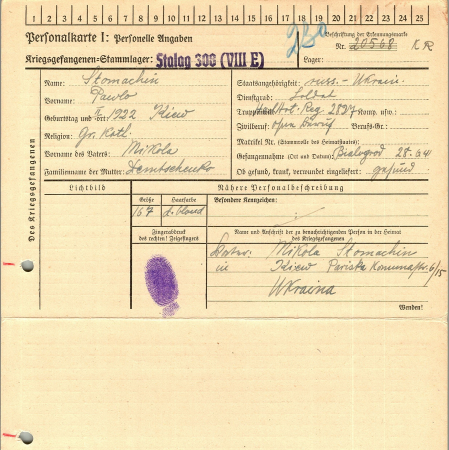 1 2 3 4 5 6 7 8 9 10 11 12 13 14 15 16 17 18 19 20 21 22 23 24 25
Personalkarte I: Personelle Angaben
Beschriftung der Erkennungsmarke
Nr. 20568
Kriegsgefangenen-Stammlager: Stalag 308 (VIII E)
Lager:
Des Kriegsgefangenen
Name: Stomachin
Vorname: Pawlo
Geburtstag und -ort: 1922 Kiew
Religion: Gr. Katl.
Vorname des Vaters: Mikola
Familienname der Mutter: Demtschenko
Staatsangehörigkeit: russ.- Ukrain.
Dienstgrad: Soldat
Truppenteil: Komp. usw.:
Zivilberuf: ohne Beruf Berufs-Gr.:
Matrikel Nr. (Stammrolle des Heimatstaates):
Gefangennahme (Ort und Datum): Bialogrod 28.6.41
Ob gesund, krank, verwundet eingeliefert: gesund
Lichtbild
Nähere Personalbeschreibung
Größe
167
Haarfarbe
d. blond
Besondere Kennzeichen:
Fingerabdruck
des rechten! Zeigefingers!
Name und Anschrift der zu benachrichtigenden Person in der Heimat
des Kriegsgefangenen
Vater: Mikola Stomachin
in Kiew 6/15
Ukraina
Wenden!